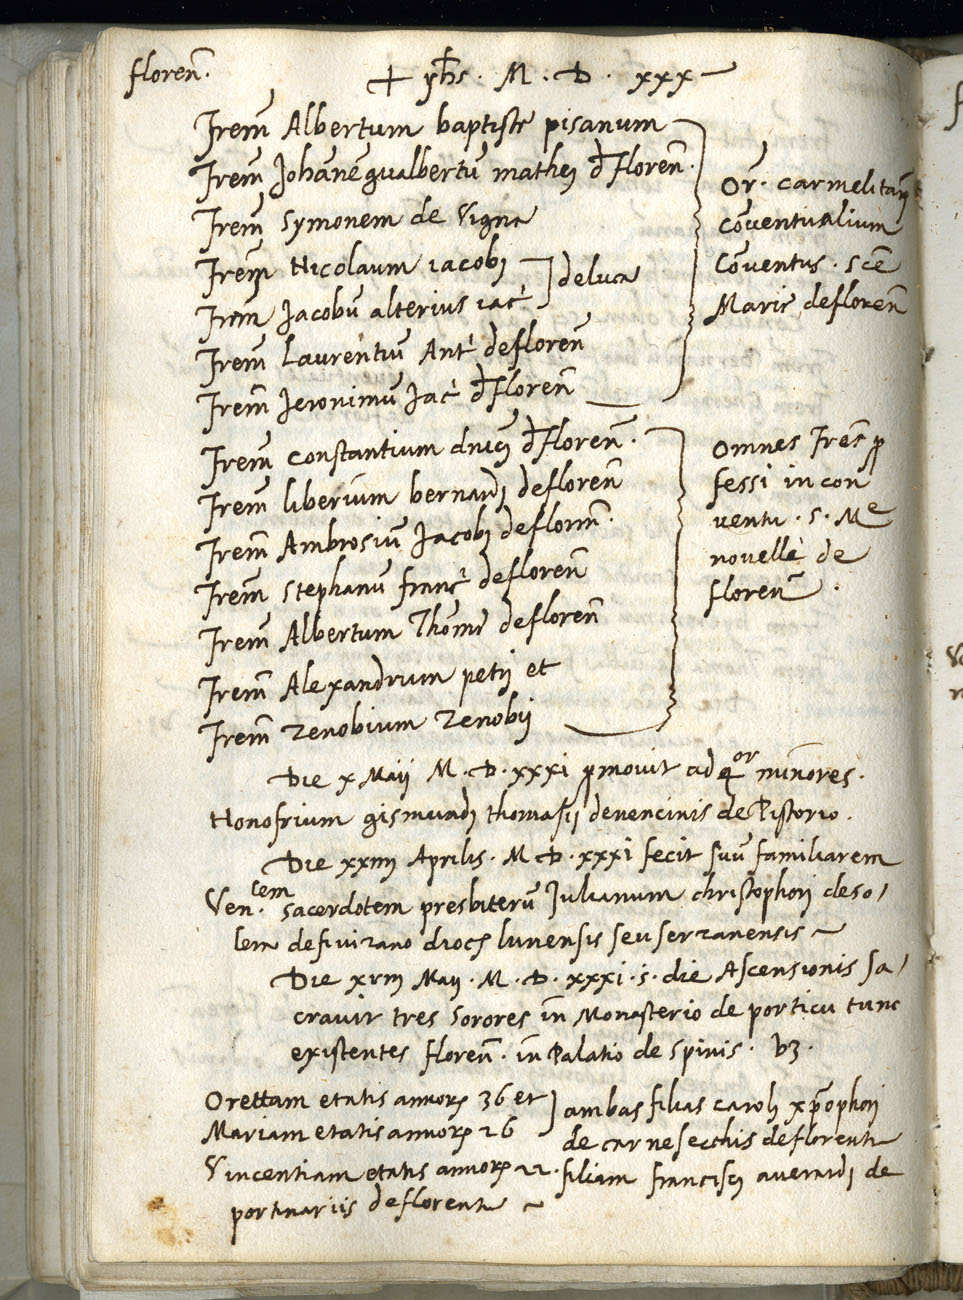 floren̄.
+ yħs · M · D · xxx
Frem̄ Albertum baptiste pisanum
Frem̄ Johāne gualbertū mathej d̄ Floren̄.
Frem̄ Symonem de Vigna
Frem̄ Nicolaum iacobj
Frem̄ Jacobū alterius iac̄
de luca
Frem̄ Laurentiū Ant̄ deflorēn
Frem̄ Jeronimū Jac̄ d̄ Floren̄
Or̄. carmelitar̄
Cōventualium
Cōventus . sc̄e
Marie defloren̄
Frem̄ constantium dnīcj d̄ Floren̄.
Frem̄ liberium bernardj defloren̄
Frem̄ Ambrosiū Jacobj defloren̄.
Frem̄ Stephanū franc̄ defloren̄
Frem̄ Albertum Thōme defloren̄
Frem̄ Alexandrum petrj et
Frem̄ Zenobium Zenobij
Omnes Frēs ꝓ
fessi in con
ventu . S . Me
novelle de
floren̄ .
Die x Maij M . D . xxxi ꝓmovit ad qor minores.
Honofrium gismundj thomasij denencinis de Pistorio .
Die xxiiij Aprilis . M D . xxxi fecit suū familiarem
Ven.cem sacerdotem presbiterū Julianum christophori deso/
lem defivizano dioc̄ lunensis seu serzanensis
Die xviij Maij . M . D . xxxi . s . die Ascensionis sa/
cravit tres sorores in Monasterio de porticu tunc
existentes floren̄ . in Palatio de spinis . vz .
Orettam etatis annorꝝ 36 et
Mariam etatis annorꝝ 26
ambas filias caroli xp̄ophori
de carnesecchis deflorentia
Vincentiam etatis annorꝝ 22 . filiam francisci averardj de
portinariis deflorentia